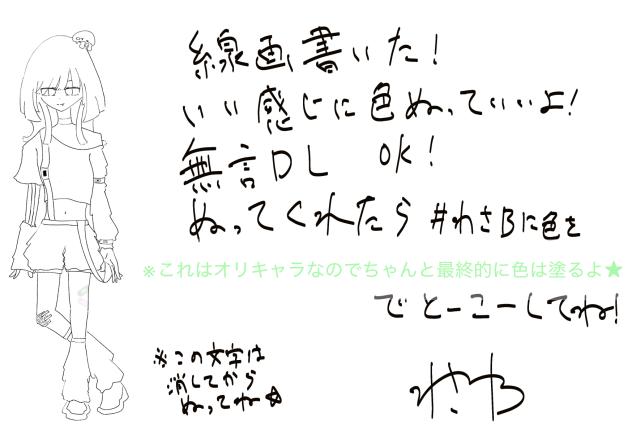 線画書いた!
いい感じに色ぬっていいよ!
無言DL OK!
ぬってくれたら #わさBに色を
※これはオリキャラなのでちゃんと最終的に色は塗るよ★
でとーこーしてね!
※この文字は
消してから
ぬってね☆
わさB